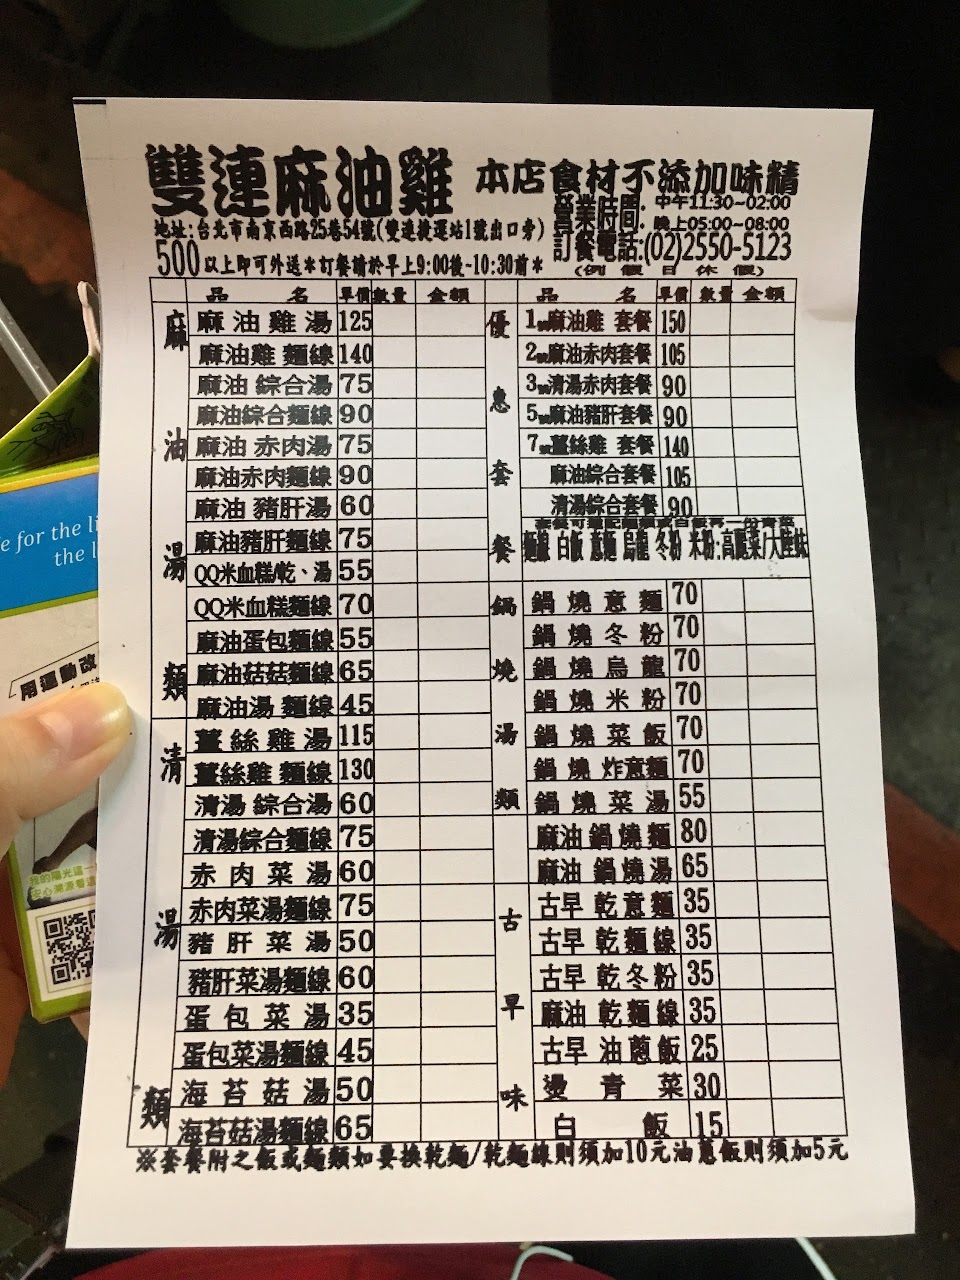 雙連麻油雞 本店食材不添加味精
營業時間: 中午11:30~02:00
晚上05:00~08:00
地址:台北市南京西路25巷54號(雙連捷運站1號出口旁)
訂餐電話:(02)2550-5123
500以上即可外送*訂餐請於早上9:00後-10:30前*
(例假日休假)
品名 單價 數量 金額
麻油湯類
麻油雞湯 125
麻油雞麵線 140
麻油綜合湯 75
麻油綜合麵線 90
麻油赤肉湯 75
麻油赤肉麵線 90
麻油豬肝湯 60
麻油豬肝麵線 75
QQ米血糕/乾、湯 55
QQ米血糕麵線 70
麻油蛋包麵線 55
麻油菇菇麵線 65
麻油湯麵線 45
清湯類
薑絲雞湯 115
薑絲雞麵線 130
清湯綜合湯 60
清湯綜合麵線 75
赤肉菜湯 60
赤肉菜湯麵線 75
豬肝菜湯 50
豬肝菜湯麵線 60
蛋包菜湯 35
蛋包菜湯麵線 45
海苔菇湯 50
海苔菇湯麵線 65
品名 單價 數量 金額
優惠套餐
1號麻油雞套餐 150
2號麻油赤肉套餐 105
3號清湯赤肉套餐 90
5號麻油豬肝套餐 90
7號薑絲雞套餐 140
麻油綜合套餐 105
清湯綜合套餐 90
套餐可選配麵類或白飯再一份青菜
麵線 白飯 意麵 烏龍 冬粉 米粉:高麗菜/大陸妹
鍋燒湯類
鍋燒意麵 70
鍋燒冬粉 70
鍋燒烏龍 70
鍋燒米粉 70
鍋燒菜飯 70
鍋燒炸意麵 70
鍋燒菜湯 55
麻油鍋燒麵 80
麻油鍋燒湯 65
古早味
古早乾意麵 35
古早乾麵線 35
古早乾冬粉 35
麻油乾麵線 35
古早油蔥飯 25
燙青菜 30
白飯 15
※套餐附之飯或麵類如要換乾麵/乾麵線則須加10元油蔥飯則須加5元
e for the li
the l
用運動改
我的陽光這一
安心溯源看這